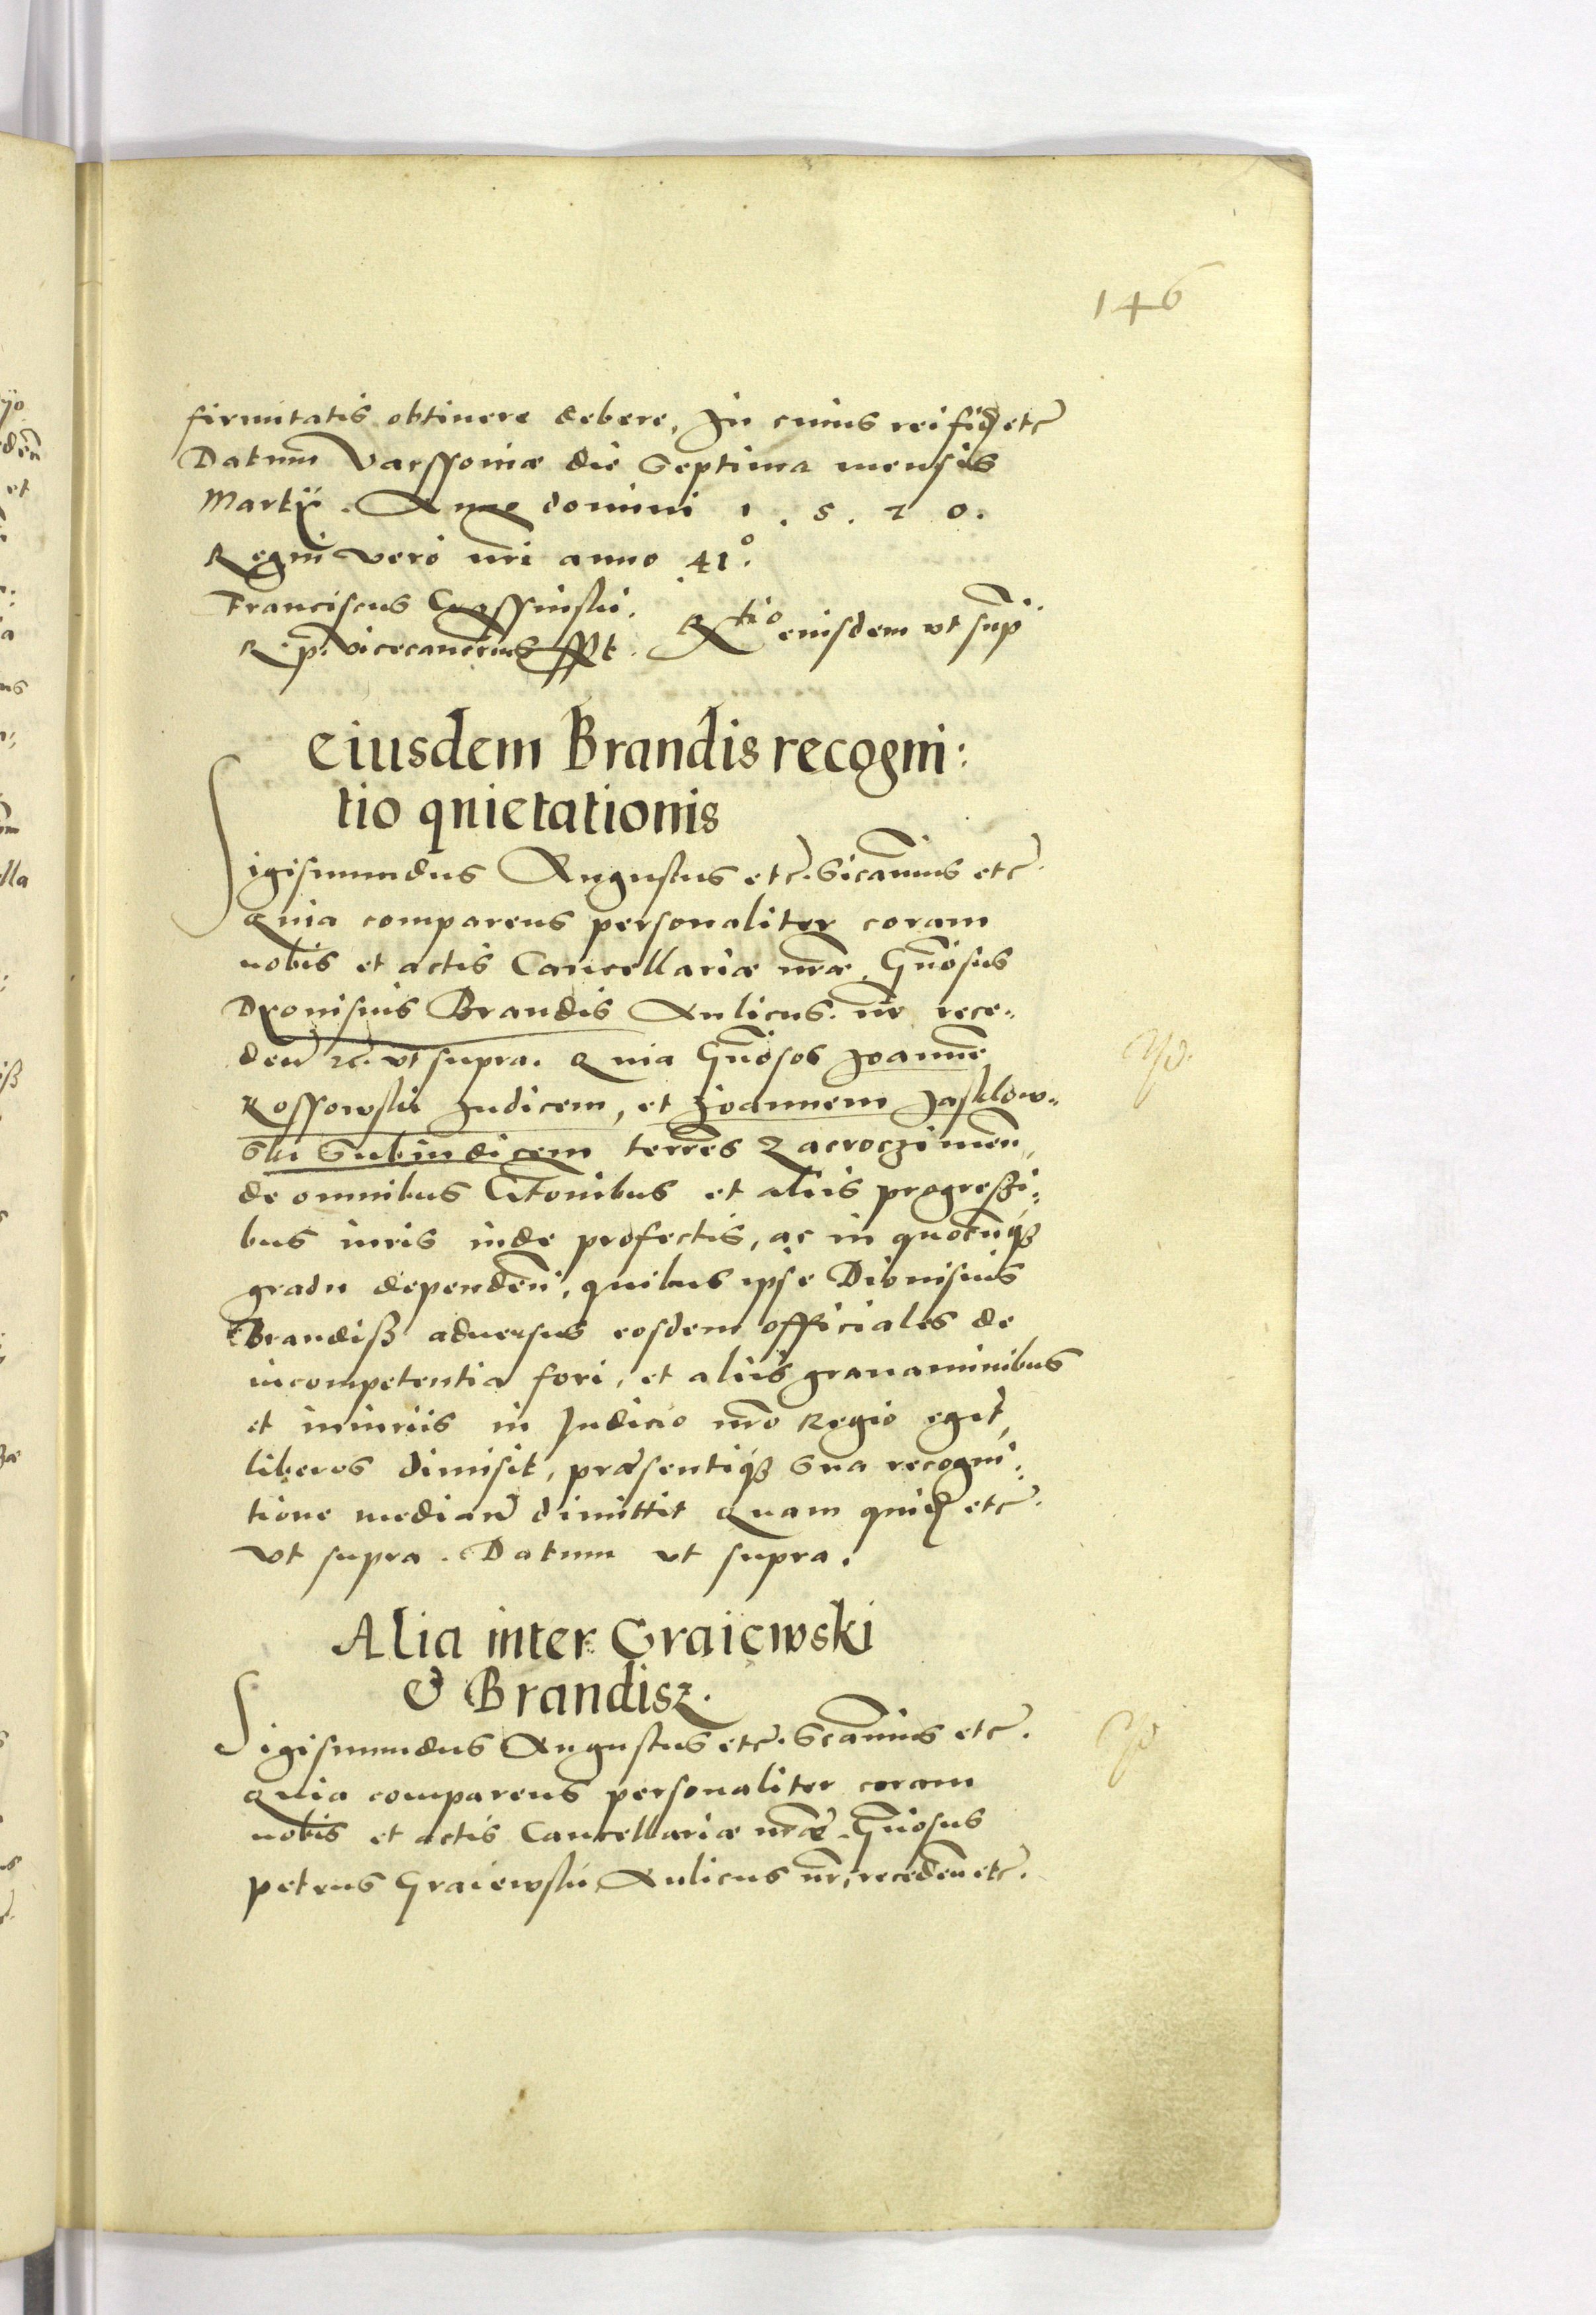 146
firmitatis obtinere debere, In cuius rei fid etc
Datum Varssoviæ die Septima mensis
Martij. Anno domini 1. 5. 7 0.
Regni vero nri anno 41°.
Franciscus Crassinski.
R. p. vicecancrius sspt. Rtio eiusdem ut sup
eiusdem Brandis recogni:
tio quietationis
Sigismundus Augustus etc. Sicamus etc.
Quia comparens personaliter coram
nobis et actis Cancellariæ nræ, Gnosus
Dyonisius Brandis Aulicus nr rece„
den etc. ut supra. Quia Gnosos Joannē
Kossowski Judicem, et Joannem Jasklow„
ski Subiudicem terres Zacroczimen,
de omnibus Citonibus et aliis progreszi„
bus iuris inde profectis, ac in quocunq3
gradu dependen, quibus ipse Dionisius
Brandiß aduersus eosdem officiales de
incompetentia fori, et aliis grauaminibus
et iniuriis in Judicio nro Regio egit,
liberos dimisit, præsentiq3 sua recogni„
tione median dimittit Quam quid etc.
ut supra. Datum ut supra.
Alia inter Graiewski
& Brandisz.
Sigismundus Augustus etc. Scamus etc.
Quia comparens personaliter coram
nobis et actis Cancellariæ nræ. Gnosus
petrus Graiewski Aulicus nr, receden etc.